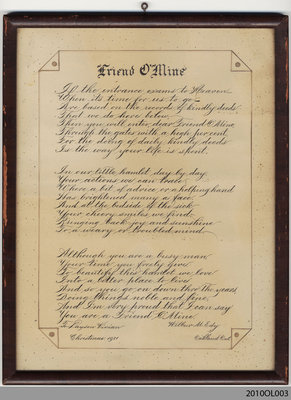 Friend O'Mine
If the entrance exams to Heaven
When its time for us to go
Are based on the records of kindly deeds
That we do here below
Then you will enter, dear Friend O'Mine
Through the gates with a high per cent,
For the doing of daily kindly deeds
Is the way your life is spent.
In our little hamlet day by day
Your actions we can trace
Where a bit of advice or a helping hand
Has brightened many a face
And at the bedside of the sick
Your cheery smiles we find
Bringing back joy and sunshine
To a weary or troubled mind
Although you are a busy man
Your time you freely give
To beautify this hamlet we love
Into a better place to live
And so you go on down thro' the years
Doing things noble and fine,
And I'm very proud that I can say
You are a Friend O'Mine.
To Payson Vivian
Wilbur M. Edy
Christmas 1931
Oakland Cal
2010OL003